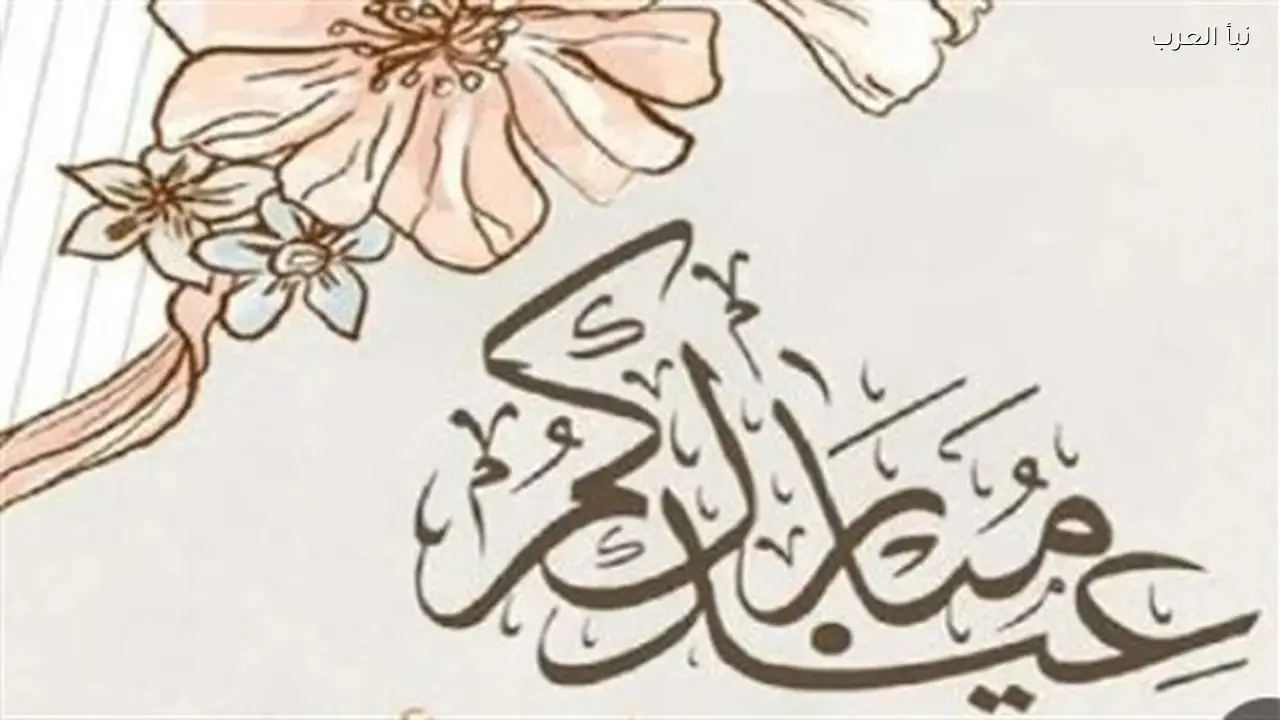 نبأ العرب
عيدكم مُبارك